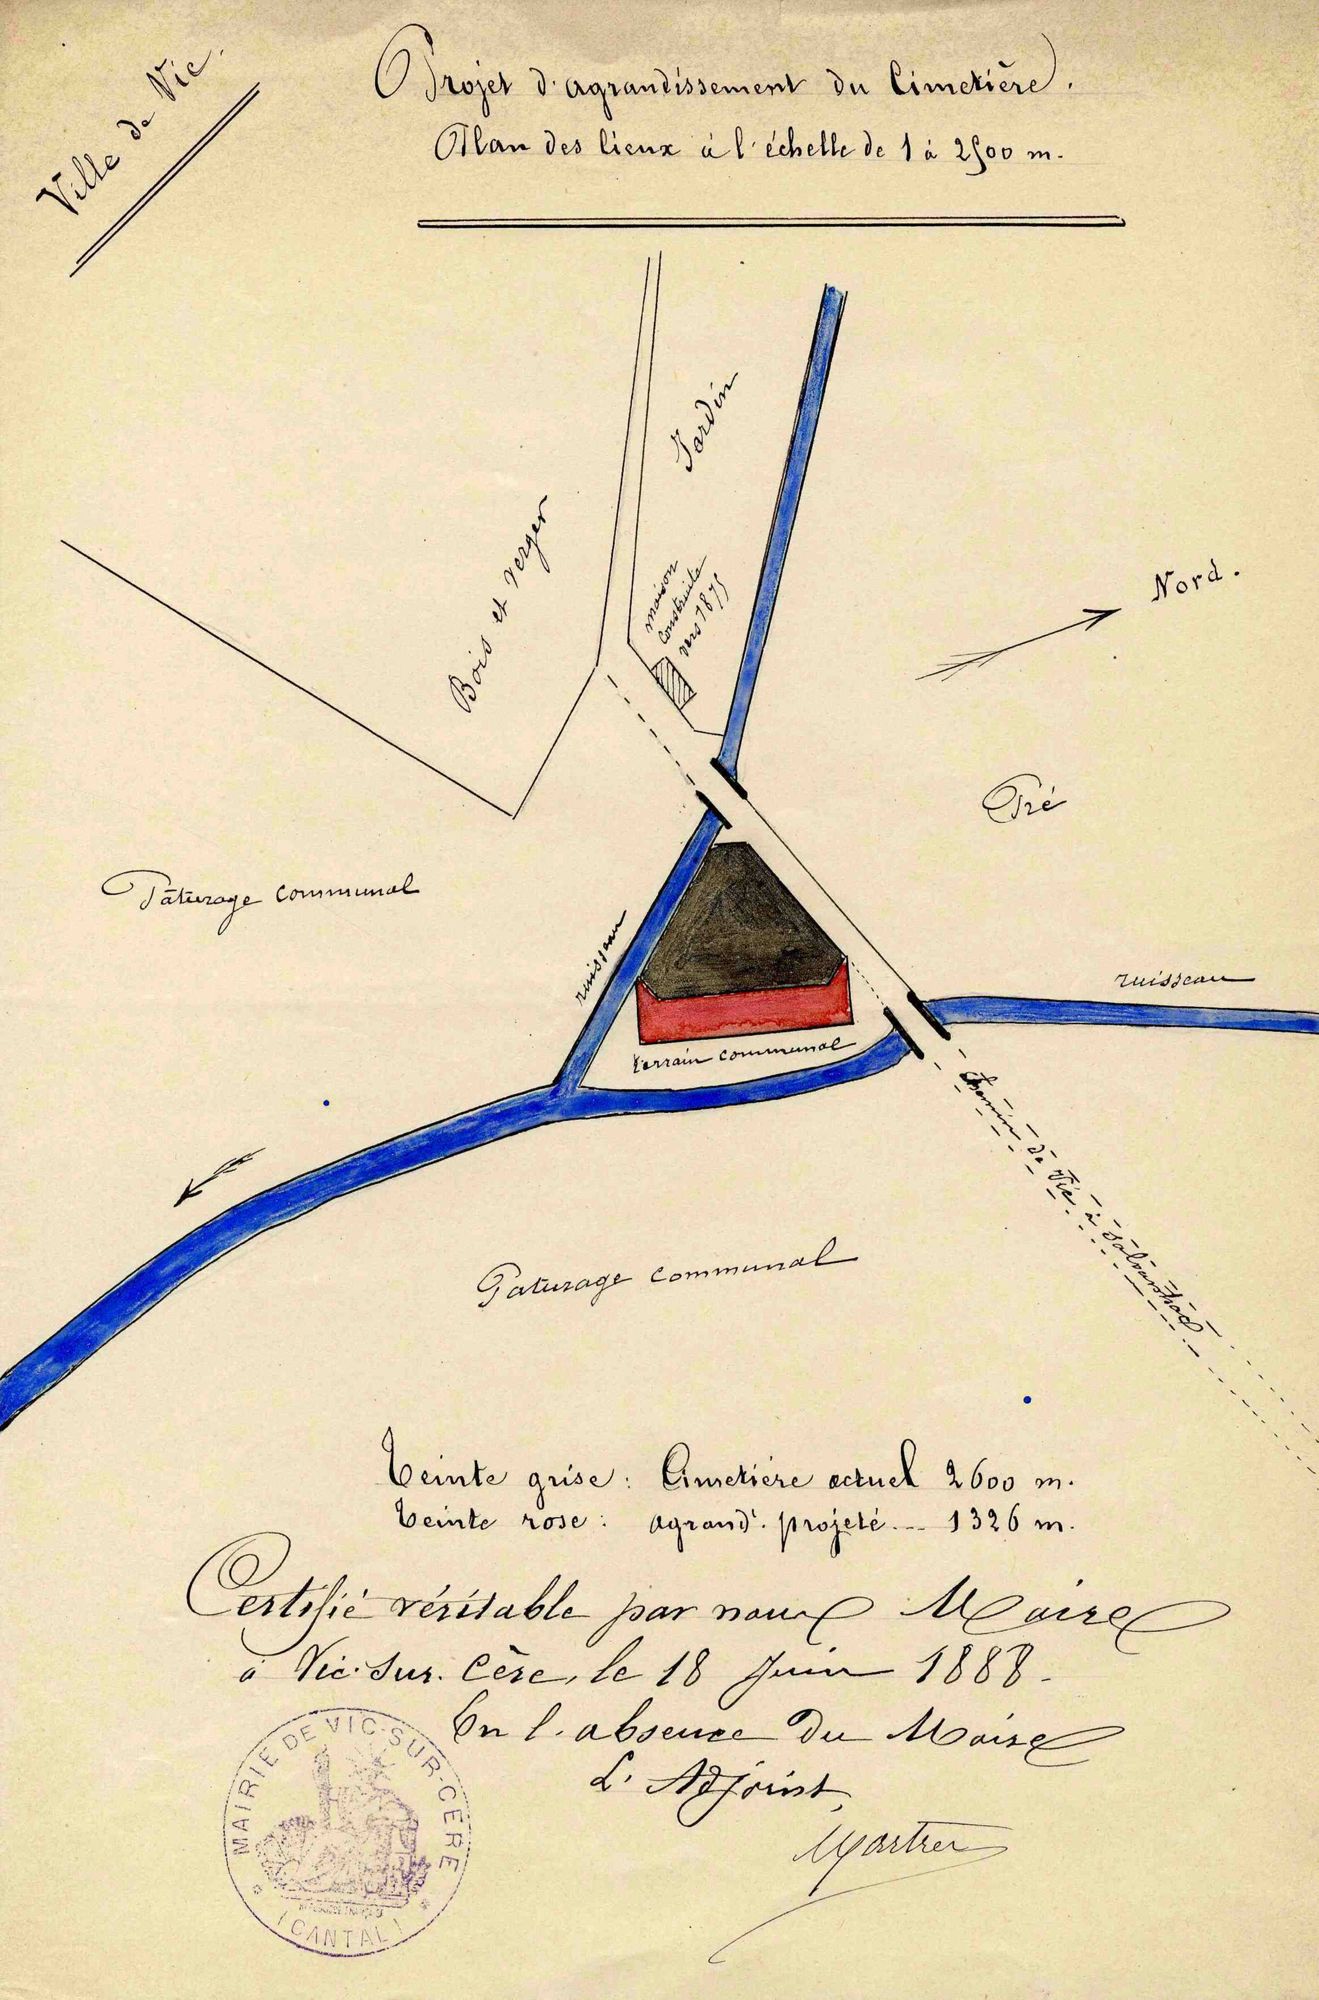 Ville de Vic.
Projet d'agrandissement du Cimetière.
Plan des lieux à l'échelle de 1 à 2500 m.
Jardin
Bois et verger
maison
construite
vers 1875
Nord.
Pré
Pâturage communal
ruisseau
ruisseau
terrain communal
Chemin de Vic à Salvanhac
Paturage communal
Teinte grise: Cimetière actuel 2600 m.
Teinte rose: agrandt. projeté... 1326 m.
Certifié véritable par nous Maire
à Vic-sur-Cère, le 18 Juin 1888.
En l'absence du Maire
L'Adjoint,
MAIRIE DE VIC-SUR-CÈRE
(CANTAL)